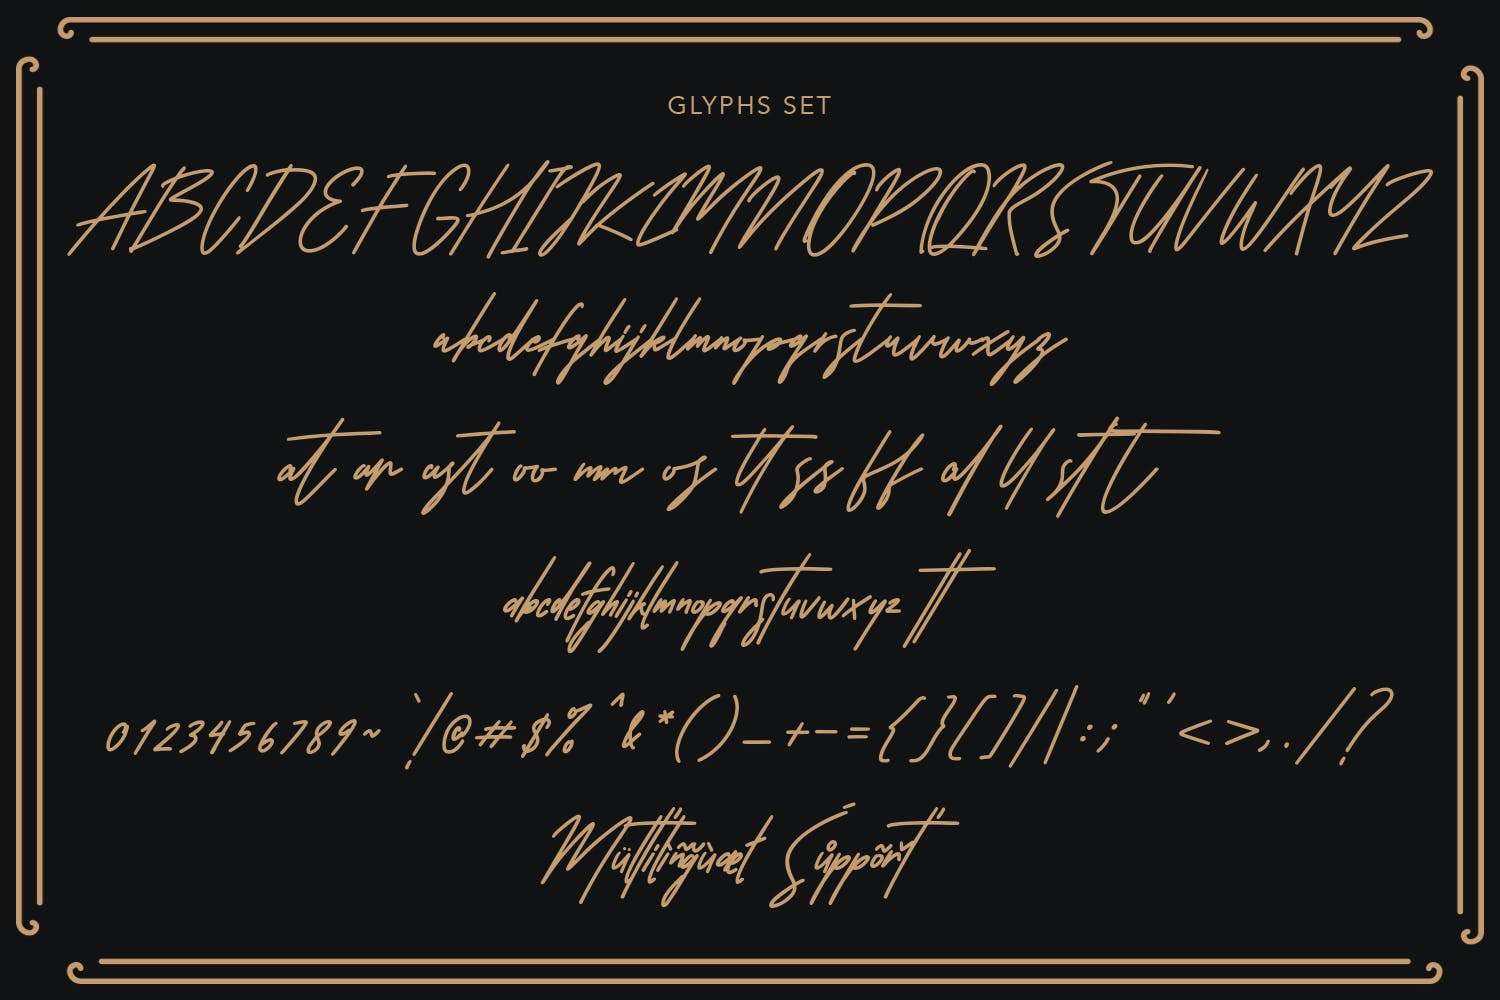 GLYPHS SET
ABCDEFGHIJKLMNOPQRSTUVWXYZ
abcdefghijklmnopqrstuvwxyz
at ar ast oo mm os tt ss ff al ll st t
abcdefghijklmnopqrstuvwxyz tt
0123456789~ `!@#$%^&*()_+-={}[]\|:;"'<>,./?
Mültilingùał Śůppõrť